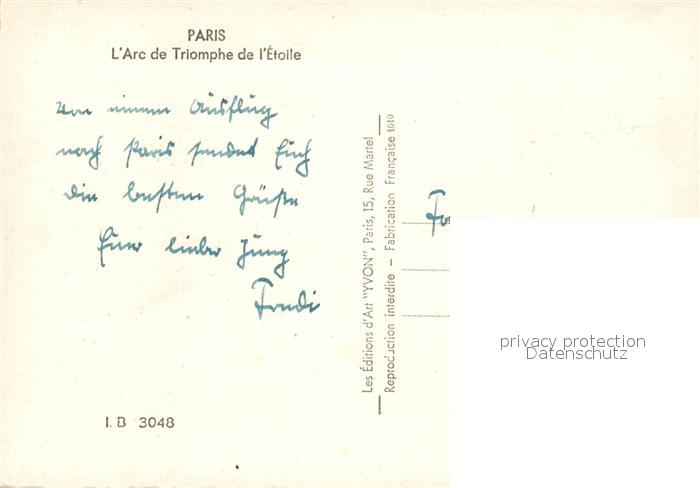 PARIS
L'Arc de Triomphe de l'Étoile
Von einem Ausflug
nach Paris sendet Euch
die besten Grüße
Euer lieber Jung
Les Éditions d'Art "YVON", Paris, 15, Rue Martel
Reproduction interdite — Fabrication Française
privacy protection
Datenschutz
I. B 3048